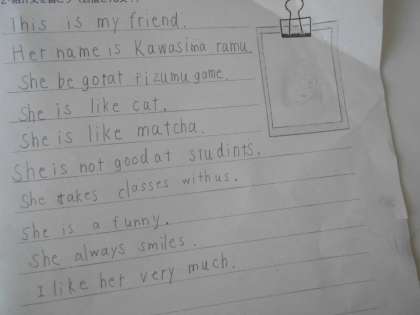 This is my friend.
Her name is Kawasima ramu.
She be gotat rizumu game.
She is like cat.
She is like matcha.
She is not good at studints.
She takes classes with us.
She is a funny.
She always smiles.
I like her very much.